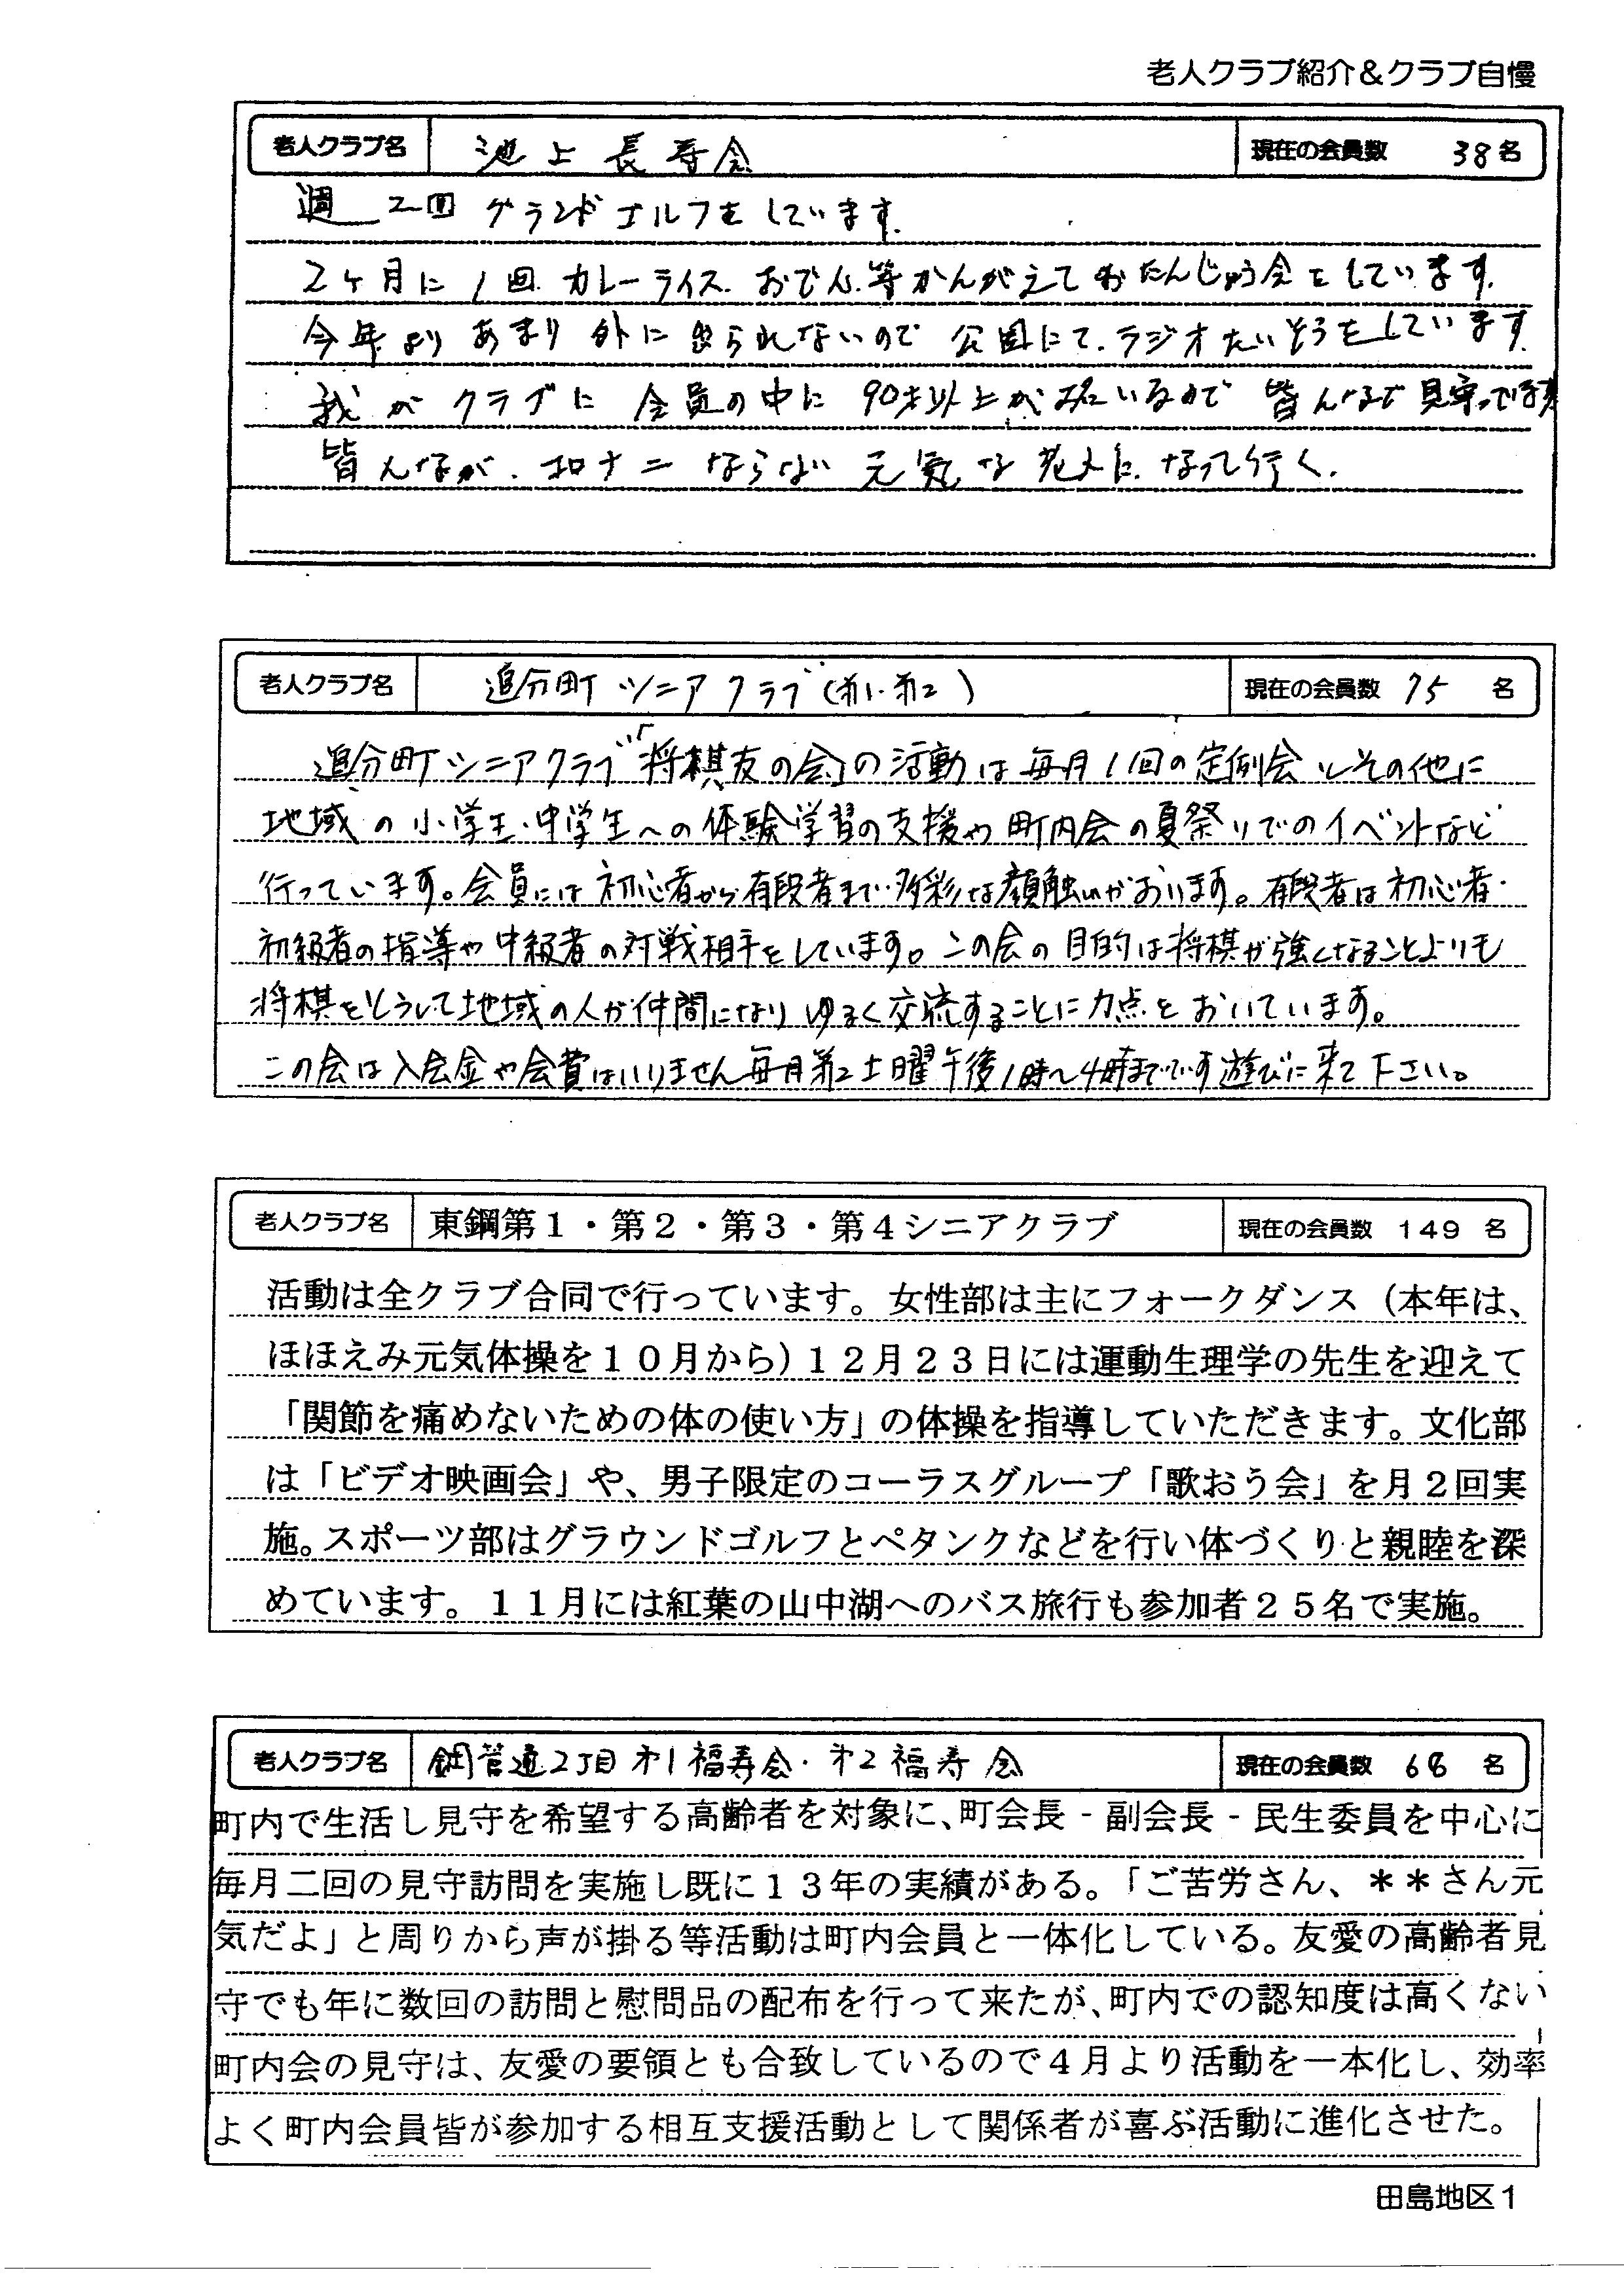 老人クラブ紹介&クラブ自慢
老人クラブ名 池上長寿会 現在の会員数 38名
週2回グランドゴルフをしています.
2ヶ月に1回.カレーライス.おでん.等かんがえておたんじょう会をしています.
今年よりあまり外に出られないので公園にて.ラジオたいそうをしています.
我がクラブに会員の中に90才以上が いるので皆んなで見守って
皆んなが.コロナニならない元気な老人に.なって行く.
老人クラブ名 追分町シニアクラブ(第1・第2) 現在の会員数 75 名
追分町シニアクラブ「将棋友の会」の活動は毎月1回の定例会とその他に
地域の小学生・中学生への体験学習の支援や町内会の夏祭りでのイベントなど
行っています。会員には初心者から有段者まで多彩な顔触れがおります。有段者は初心者・
初級者の指導や中級者の対戦相手をしています。この会の目的は将棋が強くなることよりも
将棋をとうして地域の人が仲間になりゆるく交流することに力点をおいています。
この会は入会金や会費はいりません毎月第2土曜午後1時~4時までです遊びに来て下さい。
老人クラブ名 東鋼第1・第2・第3・第4シニアクラブ 現在の会員数 149 名
活動は全クラブ合同で行っています。女性部は主にフォークダンス(本年は、
ほほえみ元気体操を10月から)12月23日には運動生理学の先生を迎えて
「関節を痛めないための体の使い方」の体操を指導していただきます。文化部
は「ビデオ映画会」や、男子限定のコーラスグループ「歌おう会」を月2回実
施。スポーツ部はグラウンドゴルフとペタンクなどを行い体づくりと親睦を深
めています。11月には紅葉の山中湖へのバス旅行も参加者25名で実施。
老人クラブ名 鋼管通2丁目 才1福寿会・才2福寿会 現在の会員数 68 名
町内で生活し見守を希望する高齢者を対象に、町会長-副会長-民生委員を中心に
毎月二回の見守訪問を実施し既に13年の実績がある。「ご苦労さん、**さん元
気だよ」と周りから声が掛る等活動は町内会員と一体化している。友愛の高齢者見
守でも年に数回の訪問と慰問品の配布を行って来たが、町内での認知度は高くない
町内会の見守は、友愛の要領とも合致しているので4月より活動を一本化し、効率
よく町内会員皆が参加する相互支援活動として関係者が喜ぶ活動に進化させた。
田島地区1